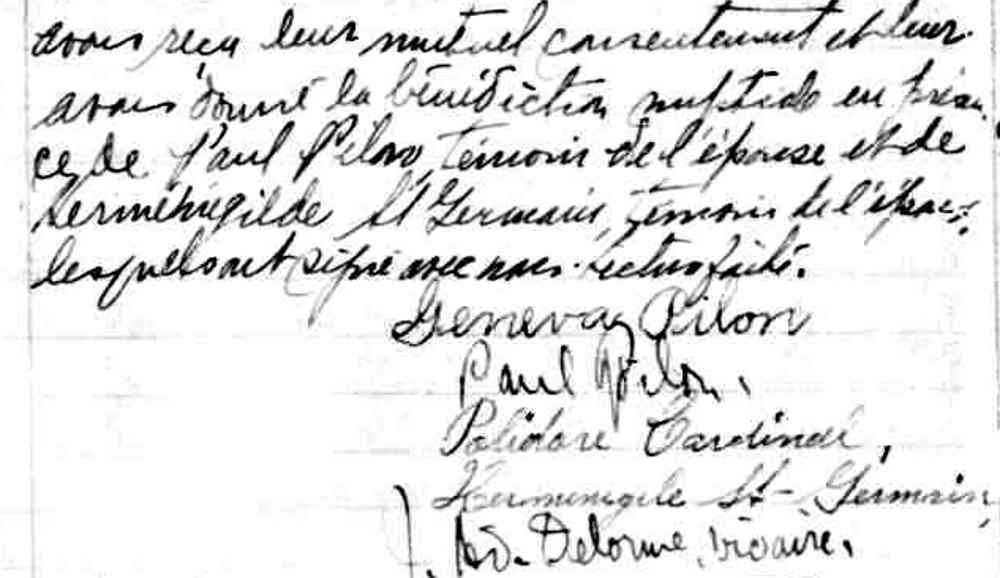 avons reçu leur mutuel consentement et leur
avons donné la bénédiction nuptiale en présen
ce, de Paul Pilon, témoin de l'épouse et de
Herménégilde St Germain, témoin de l'époux;
lesquels ont signé avec nous. Lecture faite.
Geneva Pilon
Paul Pilon.
Polidore Cardinal,
Hermenegile St-Germain,
Ad. Delorme, vicaire.